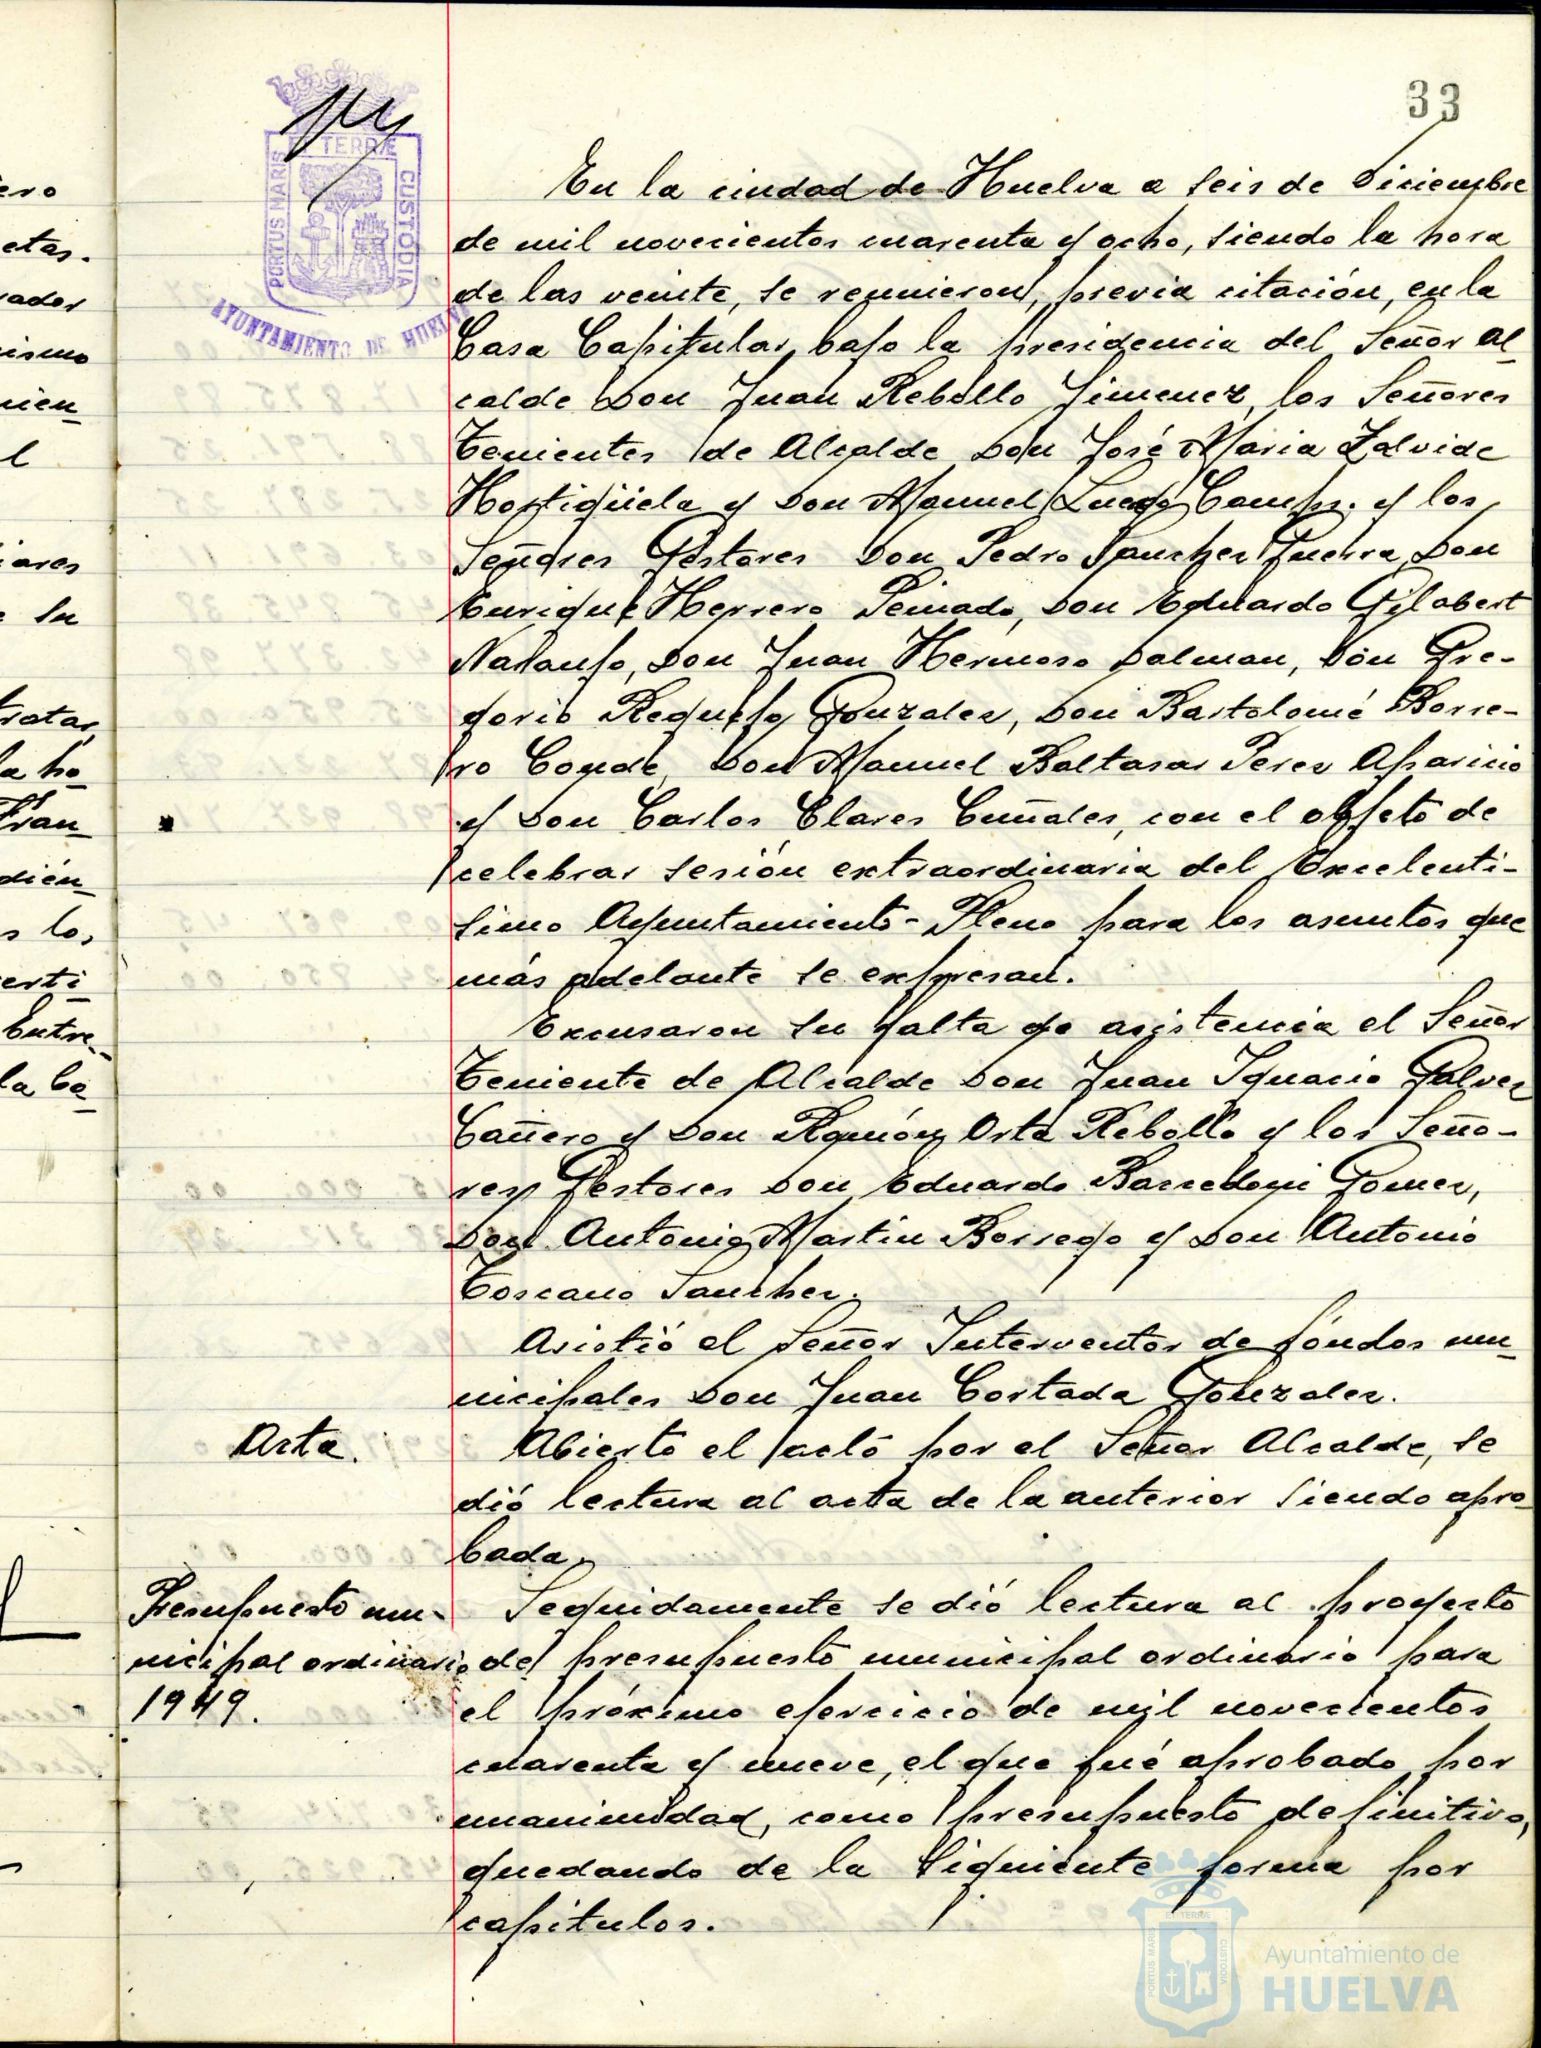 33
PORTUS MARIS
ET TERRÆ
CUSTODIA
AYUNTAMIENTO DE HUELVA
En la ciudad de Huelva a seis de Diciembre
de mil novecientos cuarenta y ocho, siendo la hora
de las veinte, se reunieron, previa citación, en la
Casa Capitular, bajo la presidencia del Señor Al
calde Don Juan Rebollo Jimenez, los Señores
Tenientes de Alcalde Don José Maria Zalvide
Hortigüela y Don Manuel Camps. y los
Señores Gestores Don Pedro Sanchez Guerra, Don
Enrique Herrero Peinado, Don Eduardo Gilabert
Naranjo, Don Juan Hermoso Dalman, Don Gre-
gorio Requejo Gonzalez, Don Bartolomé Borre-
ro Conde, Don Manuel Baltasar Perez Aparicio
y Don Carlos Clares Cuñales, con el objeto de
celebrar sesión extraordinaria del Excelenti-
simo Ayuntamiento-Pleno para los asuntos que
más adelante se expresan.
Excusaron su falta de asistencia el Señor
Teniente de Alcalde Don Juan Ignacio Galvez
Cañero y Don Ramón Orta Rebollo y los Seño-
res Gestores Don Eduardo Gomez,
Don Antonio Martin Borrego y Don Antonio
Toscano Sanchez.
Asistió el Señor Interventor de fondos mu
nicipales Don Juan Cortada Gonzalez.
Acta.
Abierto el acto por el Señor Alcalde, se
dió lectura al acta de la anterior siendo apro
bada.
Presupuesto mu-
nicipal ordinario
1949.
Seguidamente se dió lectura al proyecto
de presupuesto municipal ordinario para
el próximo ejercicio de mil novecientos
cuarenta y nueve, el que fué aprobado por
unanimidad, como presupuesto definitivo,
quedando de la siguiente forma por
capitulos.
ero
etas.
rador
rismo
l
iares
e su
tratar
la ho
Fran
dién
s los
erti
Entre
la Ca
Ayuntamiento de
HUELVA